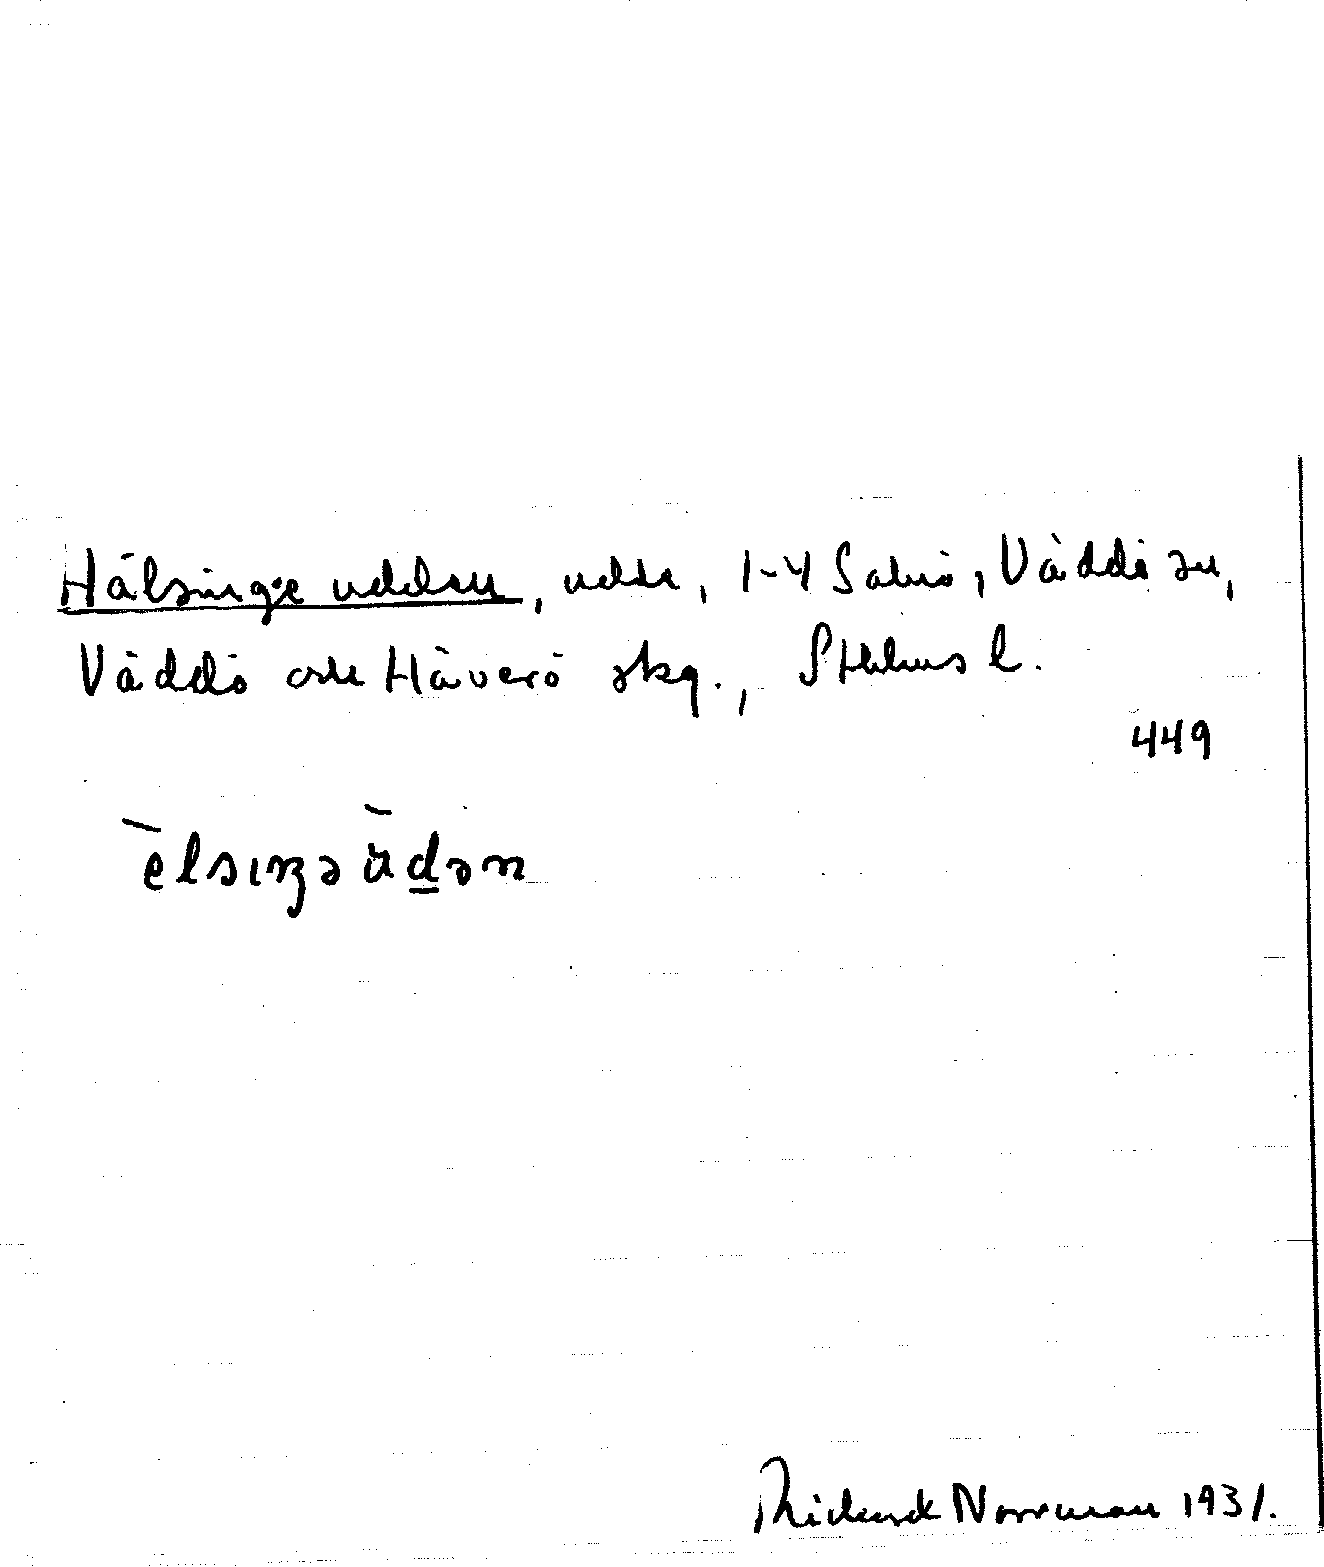 Hälsinge udden, udde, 1-4 Salnö, Väddö sn,
Väddö och Häverö skg., Sthlms l.
449
èlsıŋə ŭdən
Rickard Norrman 1931.